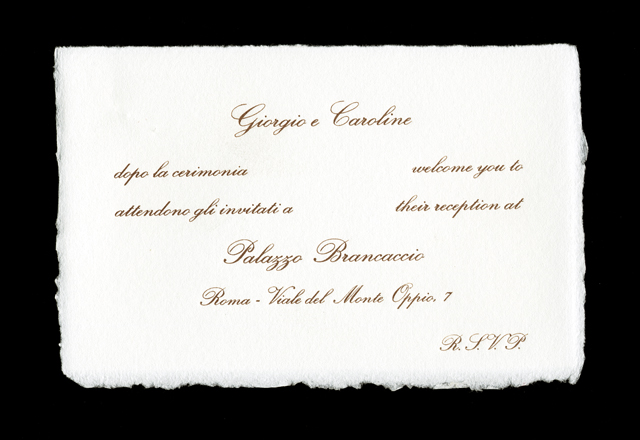 Giorgio e Caroline
dopo la cerimonia welcome you to
attendono gli invitati a their reception at
Palazzo Brancaccio
Roma - Viale del Monte Oppio, 7
R.S.V.P.